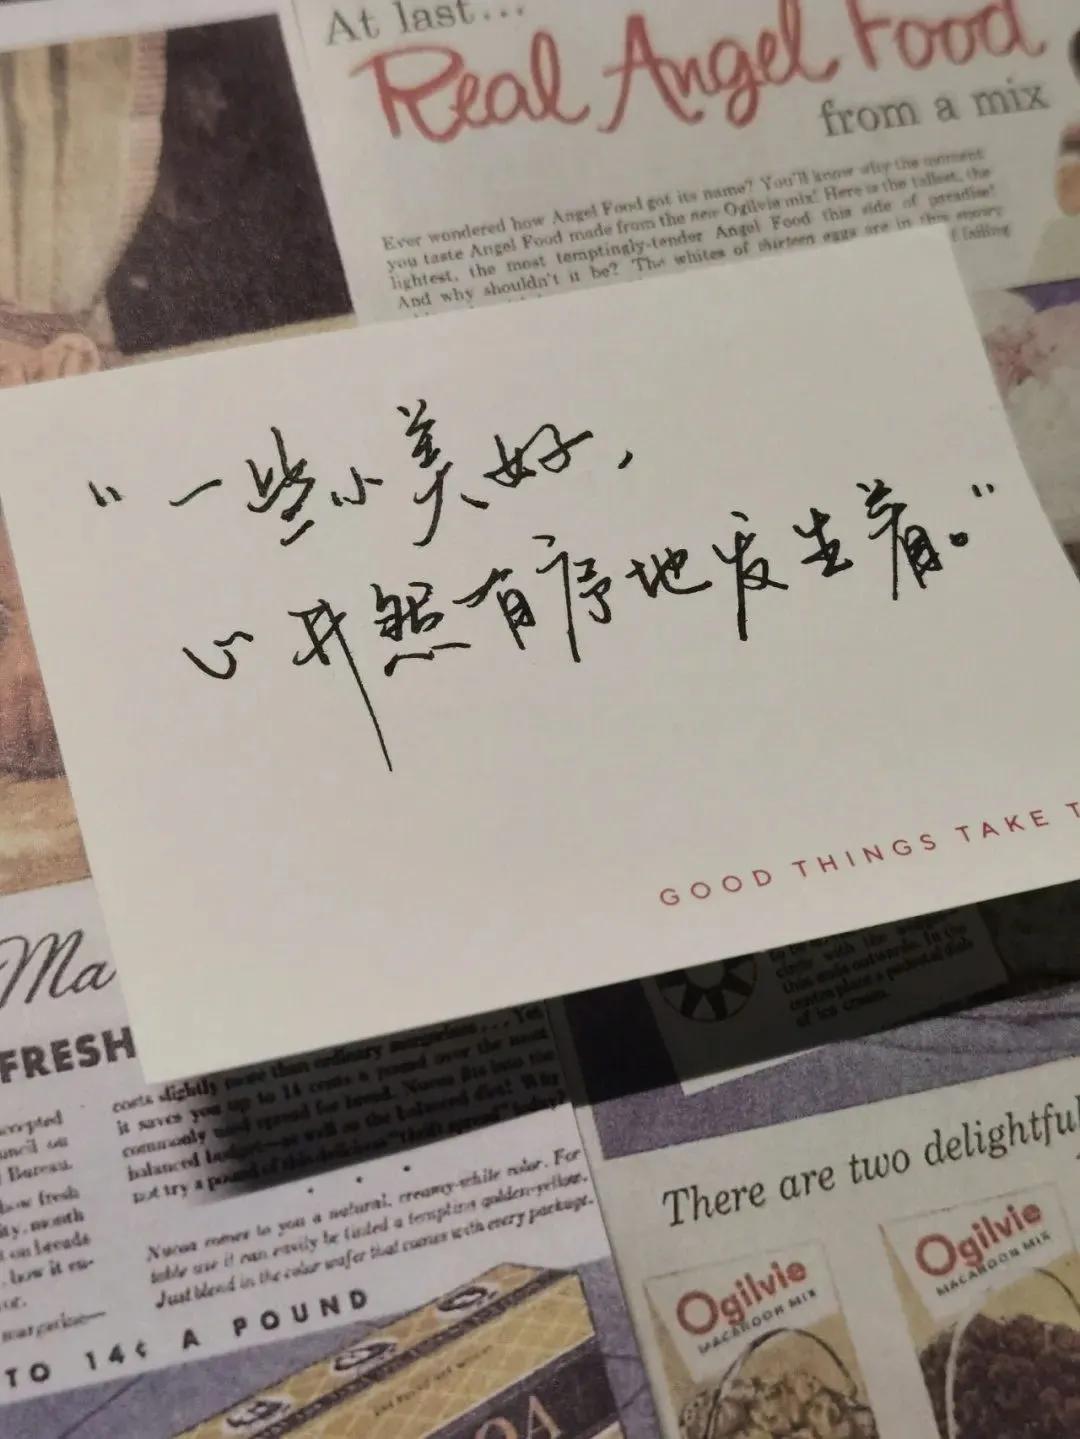 At last...
Real Angel Food
from a mix
Ever wondered how Angel Food got its name? You'll know why the moment
you taste Angel Food made from the new Ogilvie mix! Here is the tallest, the
lightest, the most temptingly-tender Angel Food this side of paradise!
And why shouldn't it be? The whites of thirteen eggs are in this snowy
falling
“一些小美好，
正井然有序地发生着。”
GOOD THINGS TAKE T
Ma
FRESH
costs slightly more than ordinary margarines... Yet
it saves you up to 14 cents a pound over the most
commonly used spread for bread. Nucoa fits into the
balanced budget—as well as the balanced diet! Why
not try a pound of this delicious "thrift spread" today?
Nucoa comes to you a natural, creamy-white color. For
table use it can easily be tinted a tempting golden-yellow.
Just blend in the color wafer that comes with every package.
TO 14¢ A POUND
circle with the
thin ends outwards. In the
centre place a pedestal dish
of ice cream.
There are two delightful
Ogilvie
MACAROON MIX
Ogilvie
MACAROON MIX